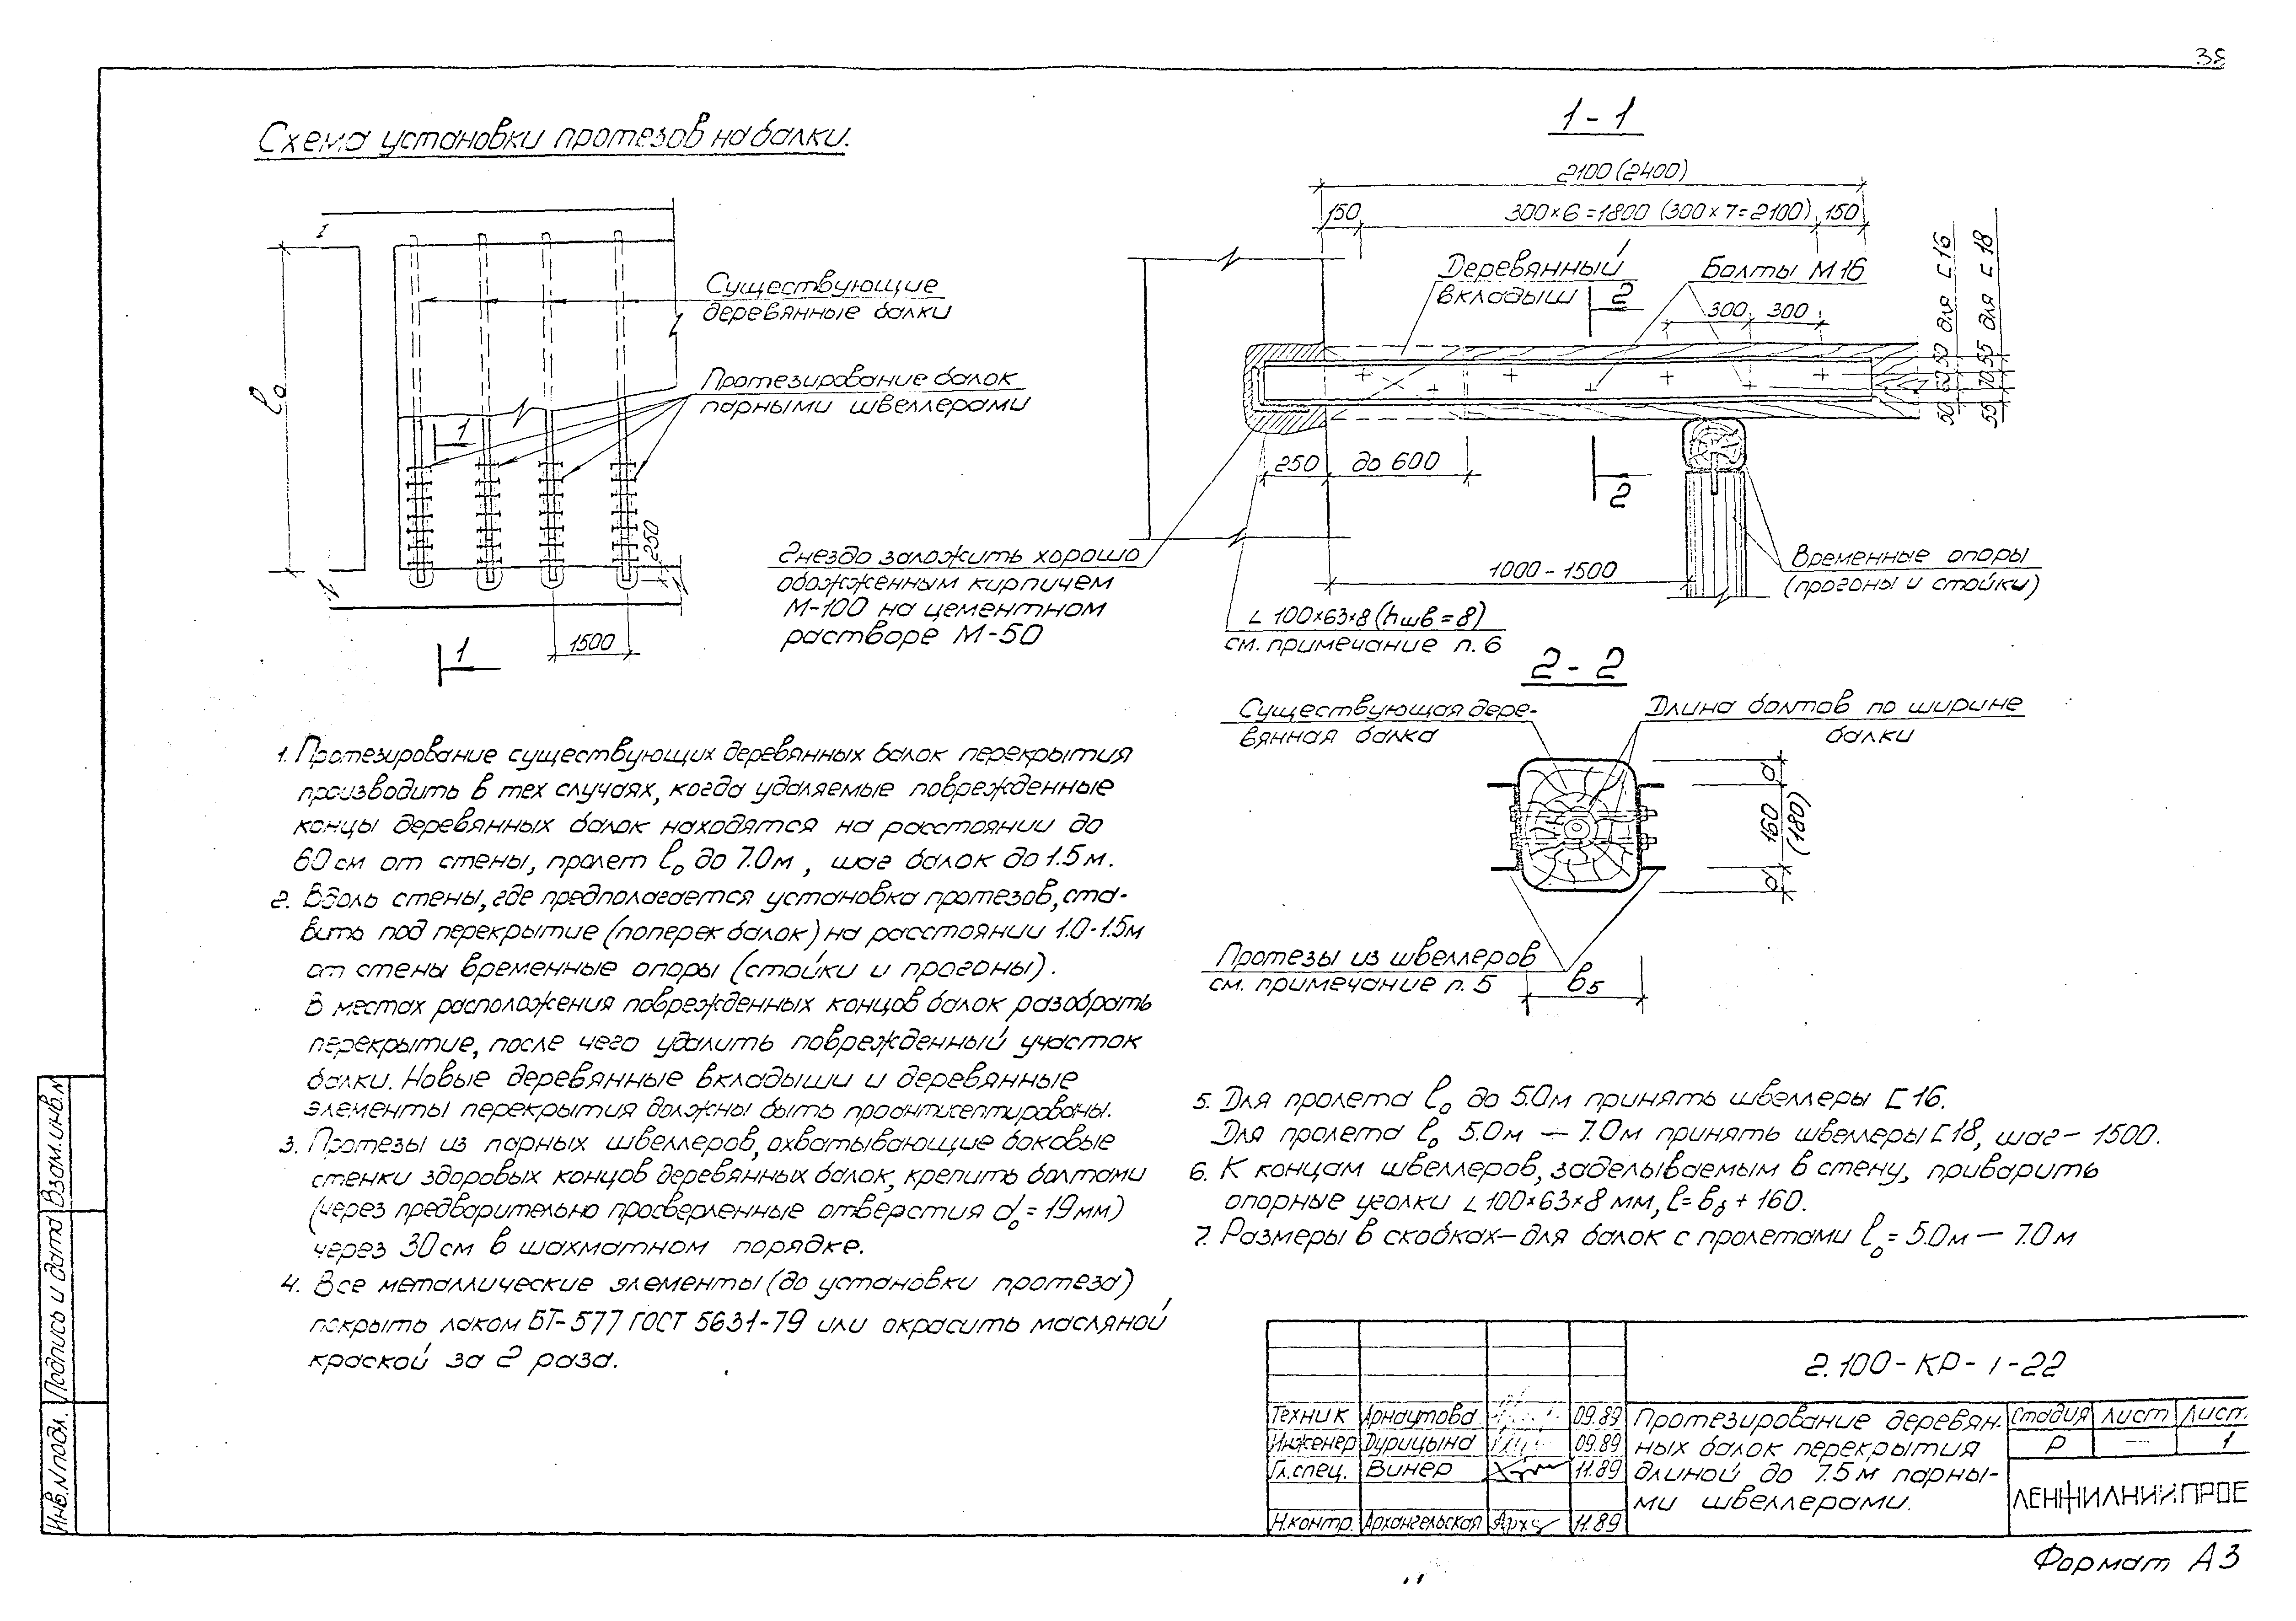 38
Схема установки протезов на балки.
1
l₀
Существующие
деревянные балки
Протезирование балок
парными швеллерами
1
250
1500
1
1-1
2100 (2400)
150
300×6=1800 (300×7=2100)
150
Деревянный
вкладыш
2
Болты М16
300
300
50 60 50 для [16
55 70 55 для [18
250
до 600
2
Гнездо заложить хорошо
обожженным кирпичем
М-100 на цементном
растворе М-50
1000-1500
Временные опоры
(прогоны и стойки)
∟100×63×8 (hшв=8)
см. примечание п.6
2-2
Существующая дере-
вянная балка
Длина болтов по ширине
балки
d
160
(180)
d
Протезы из швеллеров
см. примечание п.5
вб
1. Протезирование существующих деревянных балок перекрытия
производить в тех случаях, когда удаляемые поврежденные
концы деревянных балок находятся на расстоянии до
60 см от стены, пролет l₀ до 7.0м, шаг балок до 1.5 м.
2. Вдоль стены, где предполагается установка протезов, ста-
вить под перекрытие (поперек балок) на расстоянии 1.0-1.5м
от стены временные опоры (стойки и прогоны).
В местах расположения поврежденных концов балок разобрать
перекрытие, после чего удалить поврежденный участок
балки. Новые деревянные вкладыши и деревянные
элементы перекрытия должны быть проантисептированы.
3. Протезы из парных швеллеров, охватывающие боковые
стенки здоровых концов деревянных балок, крепить болтами
(через предварительно просверленные отверстия d₀=19мм)
через 30 см в шахматном порядке.
4. Все металлические элементы (до установки протеза)
покрыть лаком БТ-577 ГОСТ 5631-79 или окрасить масляной
краской за 2 раза.
5. Для пролета l₀ до 5.0м принять швеллеры [16.
Для пролета l₀ 5.0м — 7.0м принять швеллеры [18, шаг – 1500.
6. К концам швеллеров, заделываемым в стену, приварить
опорные уголки ∟100×63×8 мм, l=вб+160.
7. Размеры в скобках – для балок с пролетами l₀=5.0м — 7.0м
Взам.инв.N
Подпись и дата
Инв.N подл.
2.100-КР-1-22
Техник Арнаутова 09.89
Инженер Дурицына 09.89
Гл.спец. Винер 11.89
Н.контр. Архангельская 11.89
Протезирование деревян.
ных балок перекрытия
длиной до 7.5м парны-
ми швеллерами.
Стадия Лист Лист.
Р — 1
ЛЕНЖИЛНИИПРОЕ
Формат А3